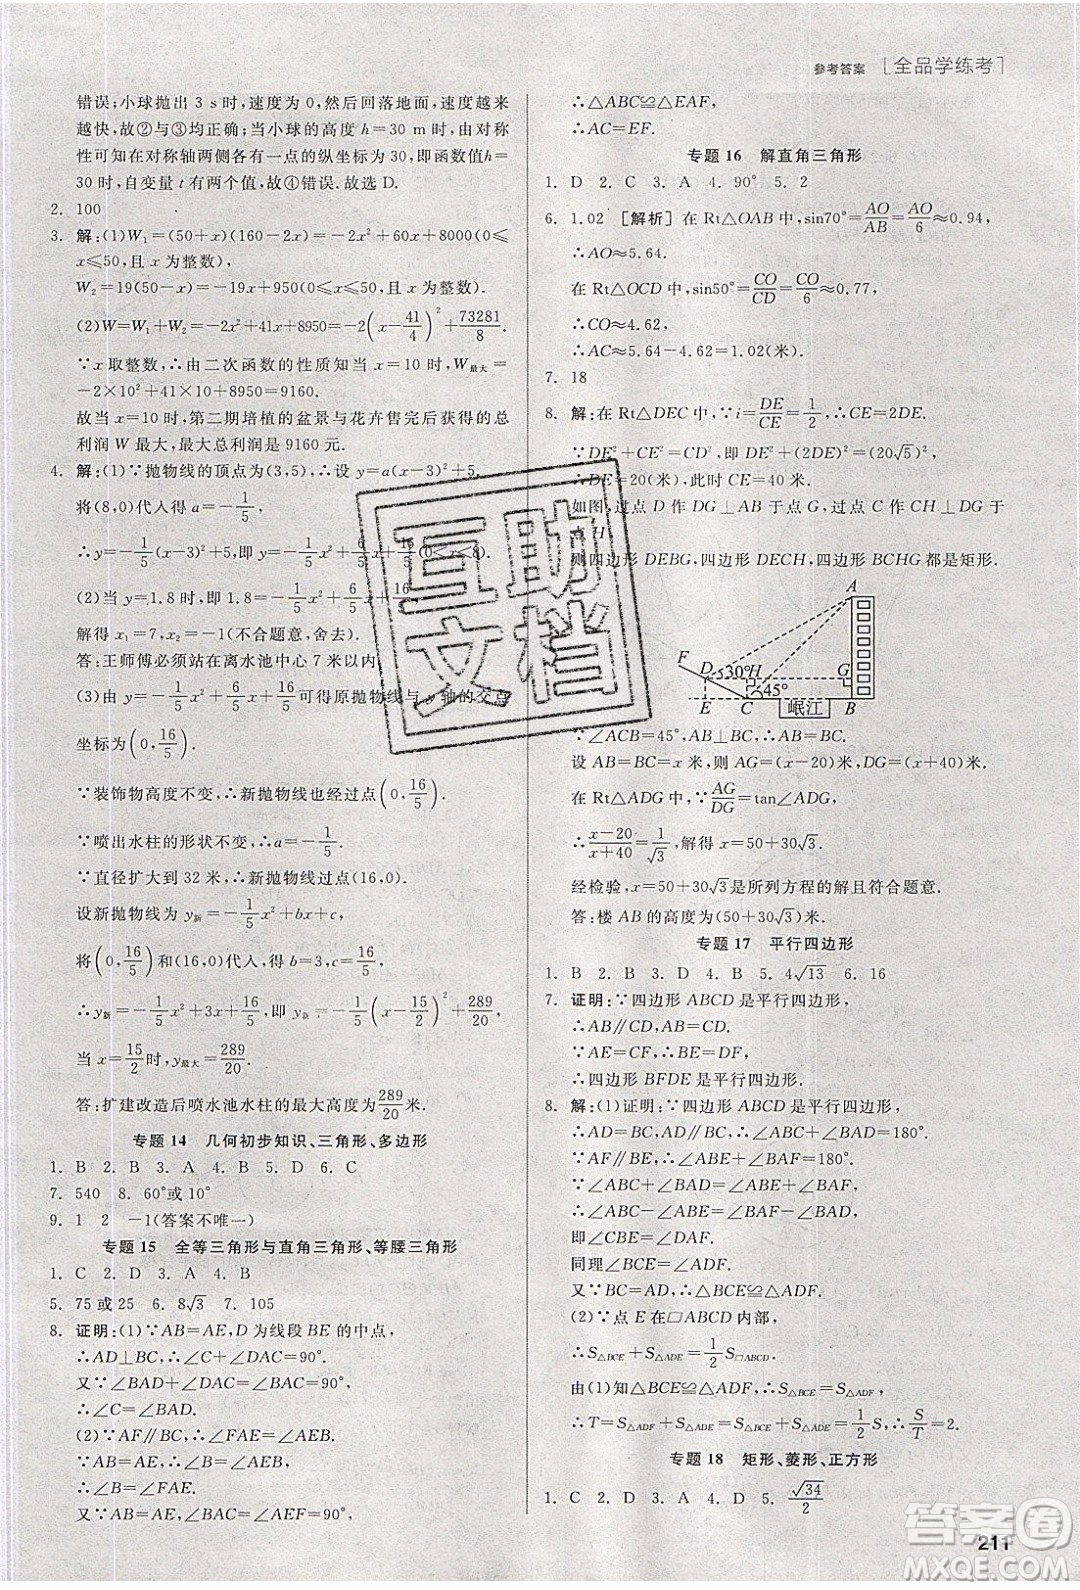 参考答案 [全品学练考]
错误;小球抛出 3 s时,速度为 0,然后落回地面,速度越来
越快,故②与③均正确;当小球的高度 h=30 m 时,由对称
性可知在对称轴两侧各有一点的纵坐标为 30,即函数值h=
30时,自变量 t 有两个值,故④错误.故选 D.
2. 100
3. 解:(1)W₁=(50+x)(160-2x)=-2x²+60x+8000(0≤
x≤50,且 x 为整数),
W₂=19(50-x)=-19x+950(0≤x≤50,且 x 为整数).
(2)W=W₁+W₂=-2x²+41x+8950=-2(x-41/4)²+73281/8.
∵x取整数,∴由二次函数的性质知当 x=10 时,W最大=
-2×10²+41×10+8950=9160.
故当 x=10 时,第二期培植的盆景与花卉售完后获得的总
利润 W 最大,最大总利润是 9160 元.
4. 解:(1)∵抛物线的顶点为(3,5),∴设 y=a(x-3)²+5,
将(8,0)代入得 a=-1/5,
∴y=-1/5(x-3)²+5,即 y=-1/5x²+6/5x+16/5(0<x<8).
(2)当 y=1.8 时,即 1.8=-1/5x²+6/5x+16/5,
解得 x₁=7,x₂=-1(不合题意,舍去).
答:王师傅必须站在离水池中心 7 米以内.
(3)由 y=-1/5x²+6/5x+16/5可得原抛物线与 y 轴的交点
坐标为(0,16/5).
∵装饰物高度不变,∴新抛物线也经过点(0,16/5).
∵喷出水柱的形状不变,∴a=-1/5.
∵直径扩大到 32 米,∴新抛物线过点(16,0).
设新抛物线为 y新=-1/5x²+bx+c,
将(0,16/5)和(16,0)代入,得 b=3,c=16/5,
∴y新=-1/5x²+3x+16/5,即 y新=-1/5(x-15/2)²+289/20,
当 x=15/2时,y最大=289/20.
答:扩建改造后喷水池水柱的最大高度为289/20米.
专题 14 几何初步知识、三角形、多边形
1. B 2. B 3. A 4. B 5. D 6. C
7. 540 8. 60°或10°
9. 1 2 -1(答案不唯一)
专题 15 全等三角形与直角三角形、等腰三角形
1. C 2. D 3. A 4. B
5. 75 或 25 6. 8√3 7. 105
8. 证明:(1)∵AB=AE,D 为线段 BE 的中点,
∴AD⊥BC,∴∠C+∠DAC=90°.
又∵∠BAD+∠DAC=90°,
∴∠C=∠BAD.
(2)∵AF∥BC,∴∠AEB=∠EAF.
∵AB=AE,∴∠B=∠AEB,∴∠B=∠EAF.
又∵AB=AE,∠BAC=∠AEF=90°,
∴△ABC≌△EAF,
∴AC=EF.
专题 16 解直角三角形
1. D 2. C 3. A 4. 90° 5. 2
6. 1.02 [解析] 在 Rt△OAB 中,sin70°=AO/AB=AO/6≈0.94,
∴AO≈5.64.
在 Rt△OCD 中,sin50°=CO/CD=CO/6≈0.77,
∴CO≈4.62,
∴AC≈5.64-4.62=1.02(米).
7. 18
8. 解:在 Rt△DEC 中,∵i=DE/CE=1/2,∴CE=2DE.
∵DE²+CE²=CD²,即 DE²+(2DE)²=(20√5)²,
∴DE=20(米),此时 CE=40 米.
如图,过点 D 作 DG⊥AB 于点 G,过点 C 作 CH⊥DG 于
点 H,
则四边形 DEBG,四边形 DECH,四边形 BCHG 都是矩形.
A
F
D 30° H G
45°
E C 岷江 B
∵∠ACB=45°,AB⊥BC,∴AB=BC.
设 AB=BC=x 米,则 AG=(x-20)米,DG=(x+40)米,
在 Rt△ADG 中,∵AG/DG=tan∠ADG,
∴x-20/x+40=1/√3,解得 x=50+30√3.
经检验,x=50+30√3是所列方程的解且符合题意.
答:楼 AB 的高度为(50+30√3)米.
专题 17 平行四边形
1. B 2. B 3. D 4. B 5. 4√13 6. 16
7. 证明:∵四边形 ABCD 是平行四边形,
∴AB∥CD,AB=CD.
∵AE=CF,∴BE=DF,
∴四边形 BFDE 是平行四边形.
8. 解:(1)证明:∵四边形 ABCD 是平行四边形,
∴AD=BC,AD∥BC,∴∠ABC+∠BAD=180°.
∵AF∥BE,∴∠EBA+∠BAF=180°,
∴∠ABC+∠BAD=∠EBA+∠BAF,
∴∠ABC-∠EBA=∠BAF-∠BAD,
即∠CBE=∠DAF.
同理得∠BCE=∠ADF.
又∵BC=AD,∴△BCE≌△ADF.
(2)∵点 E 在▱ABCD 内部,
∴S△BCE+S△ADE=1/2S▱ABCD.
由(1)知△BCE≌△ADF,∴S△BCE=S△ADF,
∴T=S△ADF+S△ADE=S△BCE+S△ADE=1/2S,∴S/T=2.
专题 18 矩形、菱形、正方形
1. C 2. D 3. A 4. D 5. √34/2
211
互助文档
答案圈
MXQE.COM